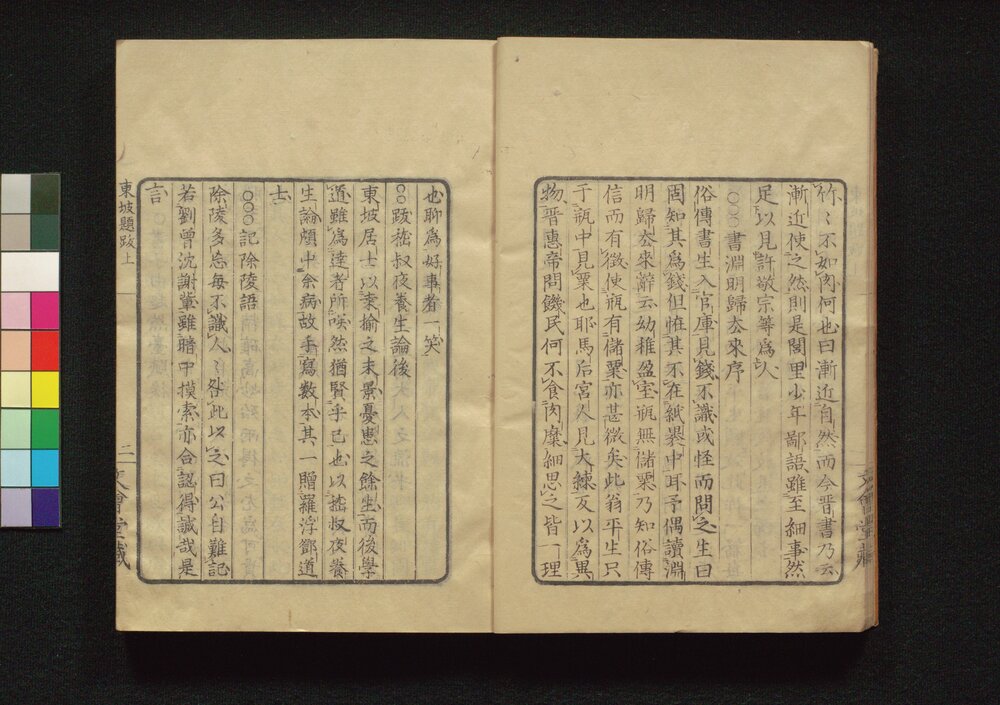 竹〻不如肉何也曰漸近自然而今晋書乃云
漸近使之然則是閭里少年鄙語雖至細事然
足以見許敬宗等爲人
○○○書淵明歸去來序
俗傳書生入官庫見錢不識或怪而問之生曰
固知其爲錢但恠其不在紙裹中耳予偶讀淵
明歸去來辭云幼稚盈室瓶無儲粟乃知俗傳
信而有徵使瓶有儲粟亦甚微矣此翁平生只
于瓶中見粟也耶馬后宮人見大練反以爲異
物晋惠帝問饑民何不食肉糜細思之皆一理
也聊爲好事者一笑
○○跋嵇叔夜養生論後
東坡居士以桒榆之末景憂患之餘生而後學
道雖爲達者所咲然猶賢乎已也以嵇叔夜養
生論頗中余病故手寫数本其一贈羅浮鄧道
士
○○○記徐陵語
徐陵多忘每不識人〻咎此以之曰公自難記
若劉曾沈謝軰雖暗中摸索亦合認得誠哉是
言
東坡題跋上
二
文會堂藏
文會堂藏